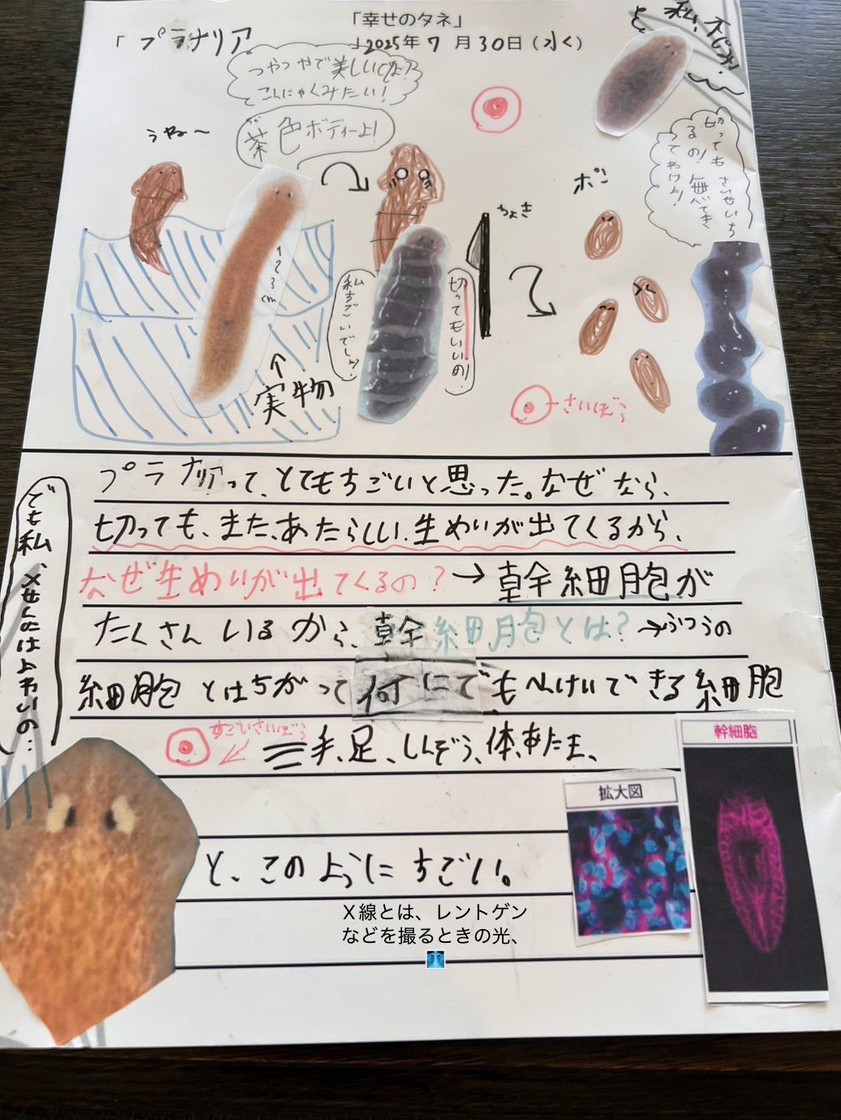 「幸せのタネ」
「プラナリア
」2025年7月30日（水く）
私、不じみ
よ
つやつやで美しいでしょ？
こんにゃくみたい！
茶色ボディーよ！
うね〜
1
2
3
cm
↑
実物
私すごいでしょ！
切ってもいいの！
ちょき
ボン
切っても
さいぼう
プラナリアって、とてもすごいと思った。なぜなら、
切っても、また、あたらしい、生めいが出てくるから、
なぜ生めいが出てくるの？→幹細胞が
たくさんいるから、幹細胞とは？→ふつうの
細胞とはちがって何にでもへんけいできる細胞
すごいさいぼう
手、足、しんぞう、体、あたま、
と、このようにすごい。
でも私、X せんにはよわいの…
幹細胞
拡大図
X線とは、レントゲン
などを撮るときの光、